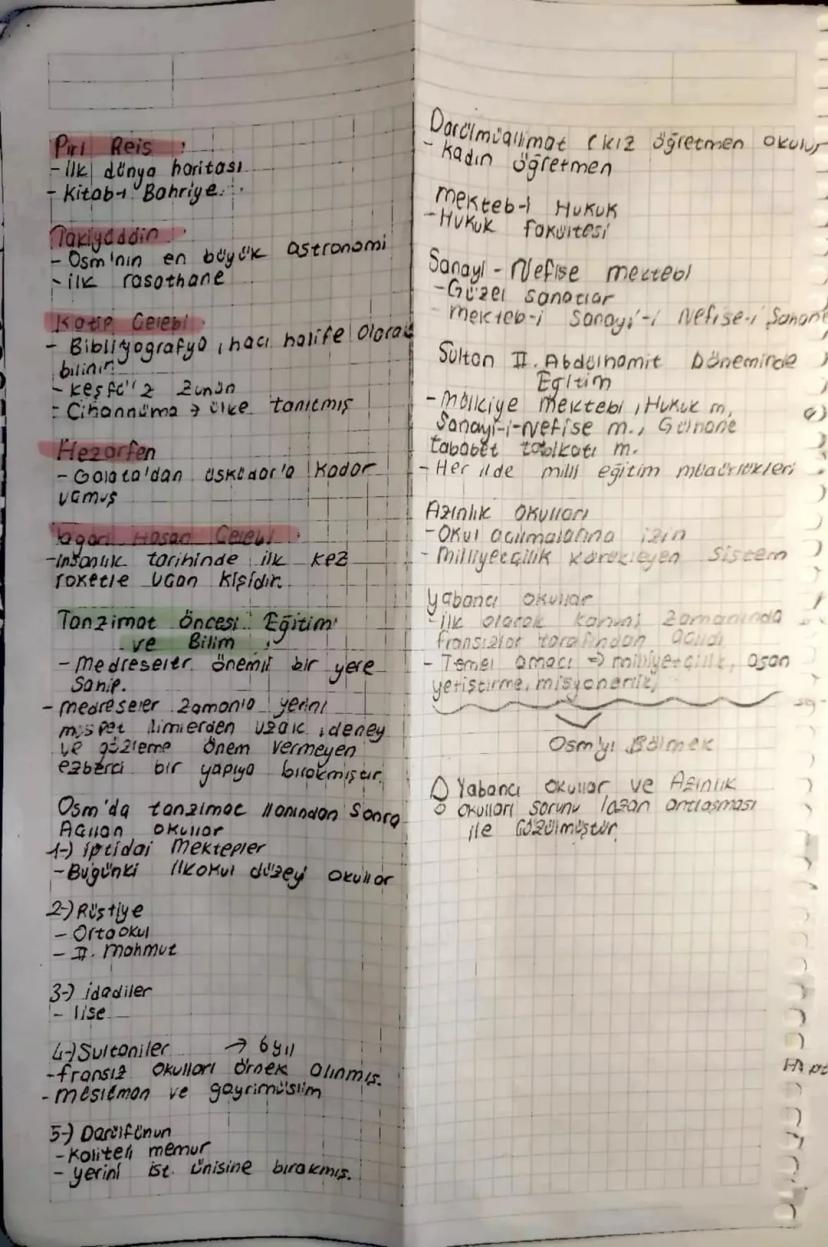 Piri Reis :
- ilk dünya haritası
- Kitab-ı Bahriye.
Takiyüddin
- Osm'nın en büyük astronomi
- ilk rasathane
Katip Çelebi
- Bibliyografya, hacı halife olarak
bilinir.
- Keşfü'z Zunûn
- Cihannüma → ülke tanıtmış
Hezarfen
- Galata'dan üsküdar'a kadar
uçmuş
Lagari Hasan Çelebi
- insanlık tarihinde ilk kez
roketle uçan kişidir.
Tanzimat öncesi Eğitim
ve Bilim
- Medreseler önemli bir yere
Sahip.
- medreseler zamanla yerini
müspet ilimlerden uzak, deney
ve gözleme önem vermeyen
ezberci bir yapıya bırakmıştır.
Osm'da tanzimat ilanından Sonra
Açılan okullar
1-) iptidai Mektepler
- Bugünki ilkokul düzeyi okullar
2-) Rüştiye
- Ortaokul
- II. Mahmut
3-) idadiler
- lise
4-) Sultaniler → 6 yıl
- fransız okulları örnek alınmış.
- müslüman ve gayrimüslim
5-) Darülfünun
- Kaliteli memur
- yerini ist. ünisine bırakmış.
Darülmuallimat (kız öğretmen okulu)
- Kadın öğretmen
mekteb-i Hukuk
- Hukuk fakültesi
Sanayi-Nefise mektebi
- Güzel sanatlar
- mekteb-i Sanayi'-i Nefise-i Şahane
Sultan II. Abdülhamit Döneminde
Eğitim
- Mülkiye mektebi, Hukuk m,
Sanayi-i-Nefise m., Gülhane
tababet tatbikatı m.
- Her ilde milli eğitim müdürlükleri
Azınlık okulları
- Okul açılmalarına izin
- Milliyetçilik körükleyen sistem
Yabancı okullar
- ilk olarak kanuni zamanında
fransızlar tarafından açıldı
- Temel amacı → milliyetçilik, ajan
yetiştirme, misyonerlik,
Osm'yı Bölmek
Yabancı okullar ve Azınlık
okulları sorunu lozan antlaşması
ile çözülmüştür